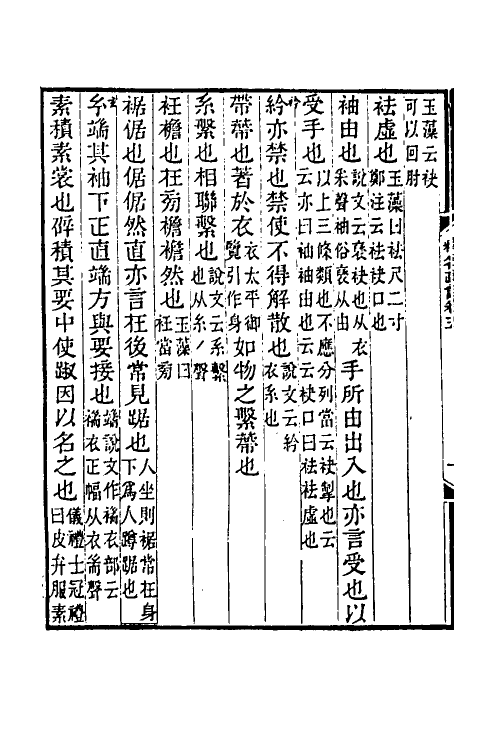 玉藻云袂
可以回肘
袪虛也
玉藻曰袪尺二寸
鄭注云袪袂口也
袖由也
說文云褎袂也从衣
𥝩聲袖俗褎从由
手所由出入也亦言受也以
受手也
以上三條類也不應分列當云袂掣也云
云亦曰袖袖由也云云袂口曰袪袪虛也
衿亦禁也禁使不得解散也
說文云衿
衣系也
帶蔕也著於衣
衣太平御
覽引作身
如物之繫蔕也
系繫也相聯繫也
說文云系繫
也从糸丿聲
衽襜也在旁襜襜然也
玉藻曰
衽當旁
裾倨也倨倨然直亦言在後常見踞也
人坐則裾常在身
下爲人蹲踞也
玄
端其袖下正直端方與要接也
端說文作褍衣部云
褍衣正幅从衣耑聲
素積素裳也辟積其要中使踧因以名之也
儀禮士冠禮
曰皮弁服素